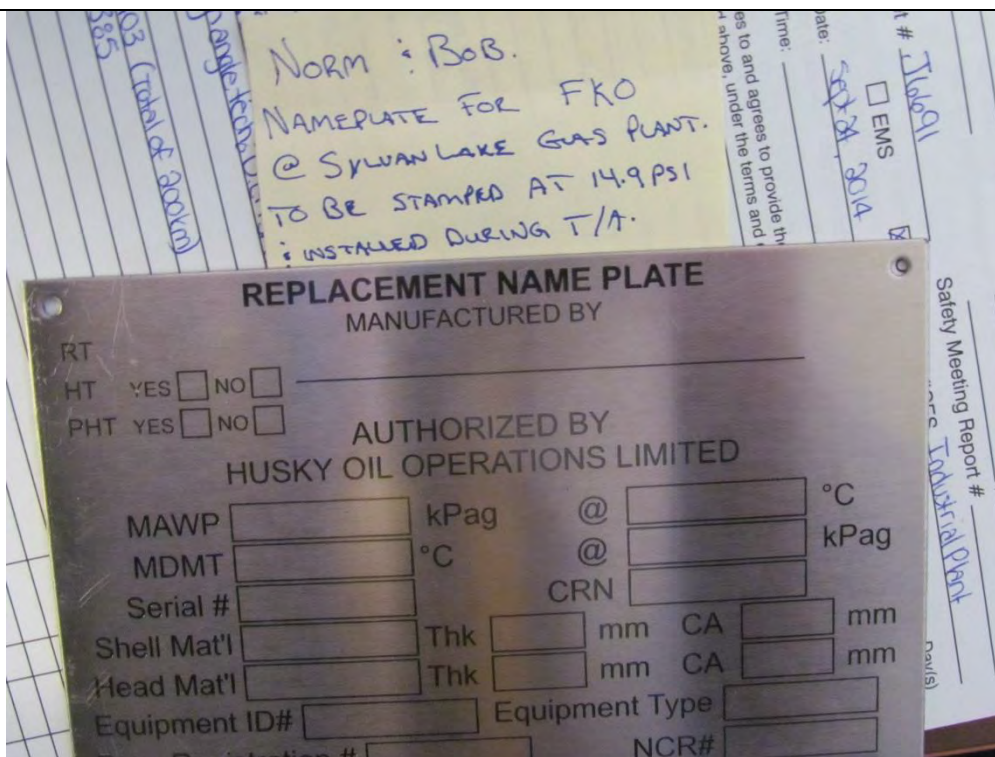 NORM : BOB.
NAMEPLATE FOR FKO
@ SYLVAN LAKE GAS PLANT.
TO BE STAMPED AT 14.9 PSI
: INSTALLED DURING T/A.
REPLACEMENT NAME PLATE
MANUFACTURED BY
RT
HT YES NO
PHT YES NO
AUTHORIZED BY
HUSKY OIL OPERATIONS LIMITED
MAWP kPag @ °C
MDMT °C @ kPag
Serial # CRN
Shell Mat'l Thk mm CA mm
Head Mat'l Thk mm CA mm
Equipment ID# Equipment Type
Registration # NCR#
(total of 200km)
385
t # J6691
EMS
Sept 21, 2014
Time:
es to and agrees to provide the
above, under the terms and
Safety Meeting Report #
Industrial Plant
Day(s)